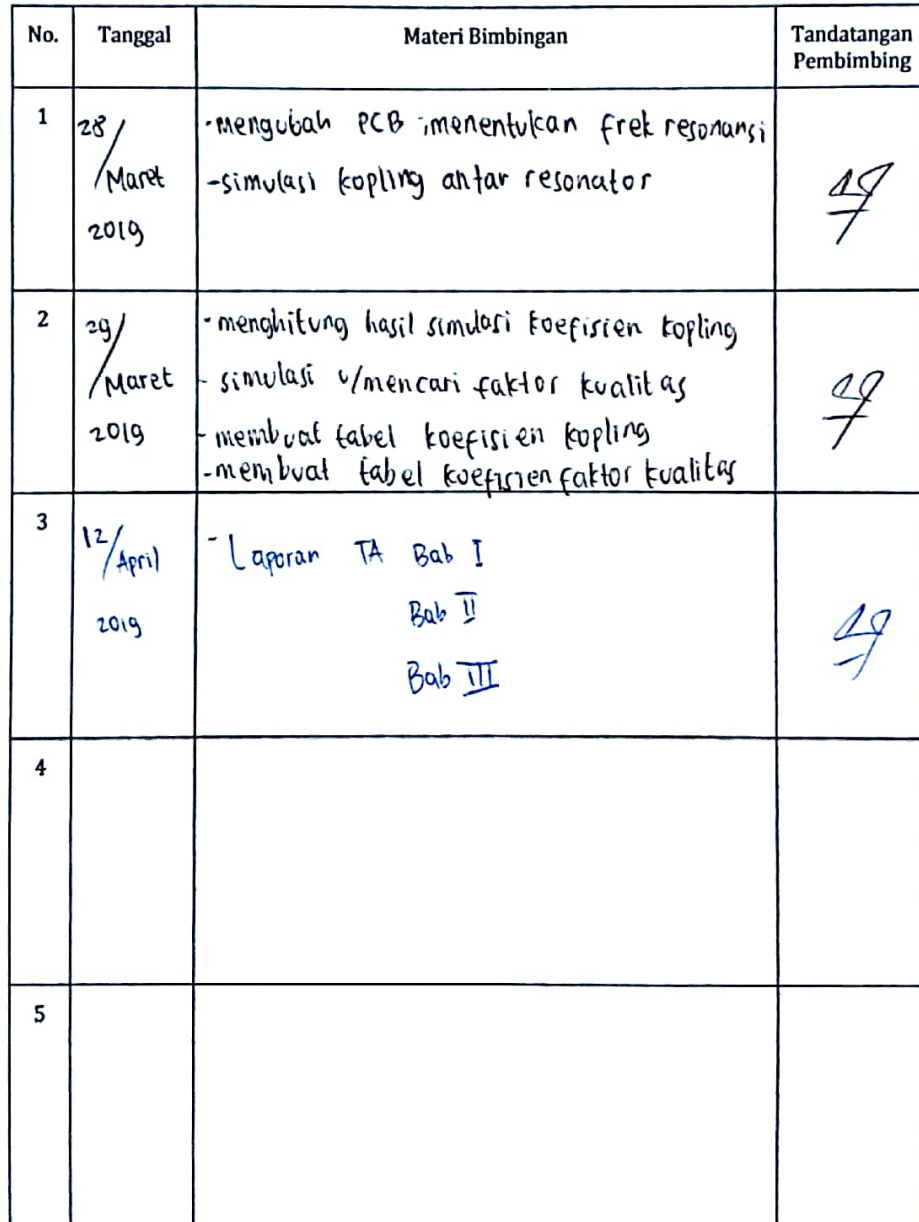 No. Tanggal Materi Bimbingan Tandatangan
Pembimbing
1 28/ -mengubah PCB ;menentukan frek resonansi
Maret -simulasi kopling antar resonator
2019
2 29/ -menghitung hasil simulasi koefisien kopling
Maret - simulasi u/mencari faktor kualitas
2019 - membuat tabel koefisien kopling
-membuat tabel koefisien faktor kualitas
3 12/April - Laporan TA Bab I
2019 Bab II
Bab III
4
5